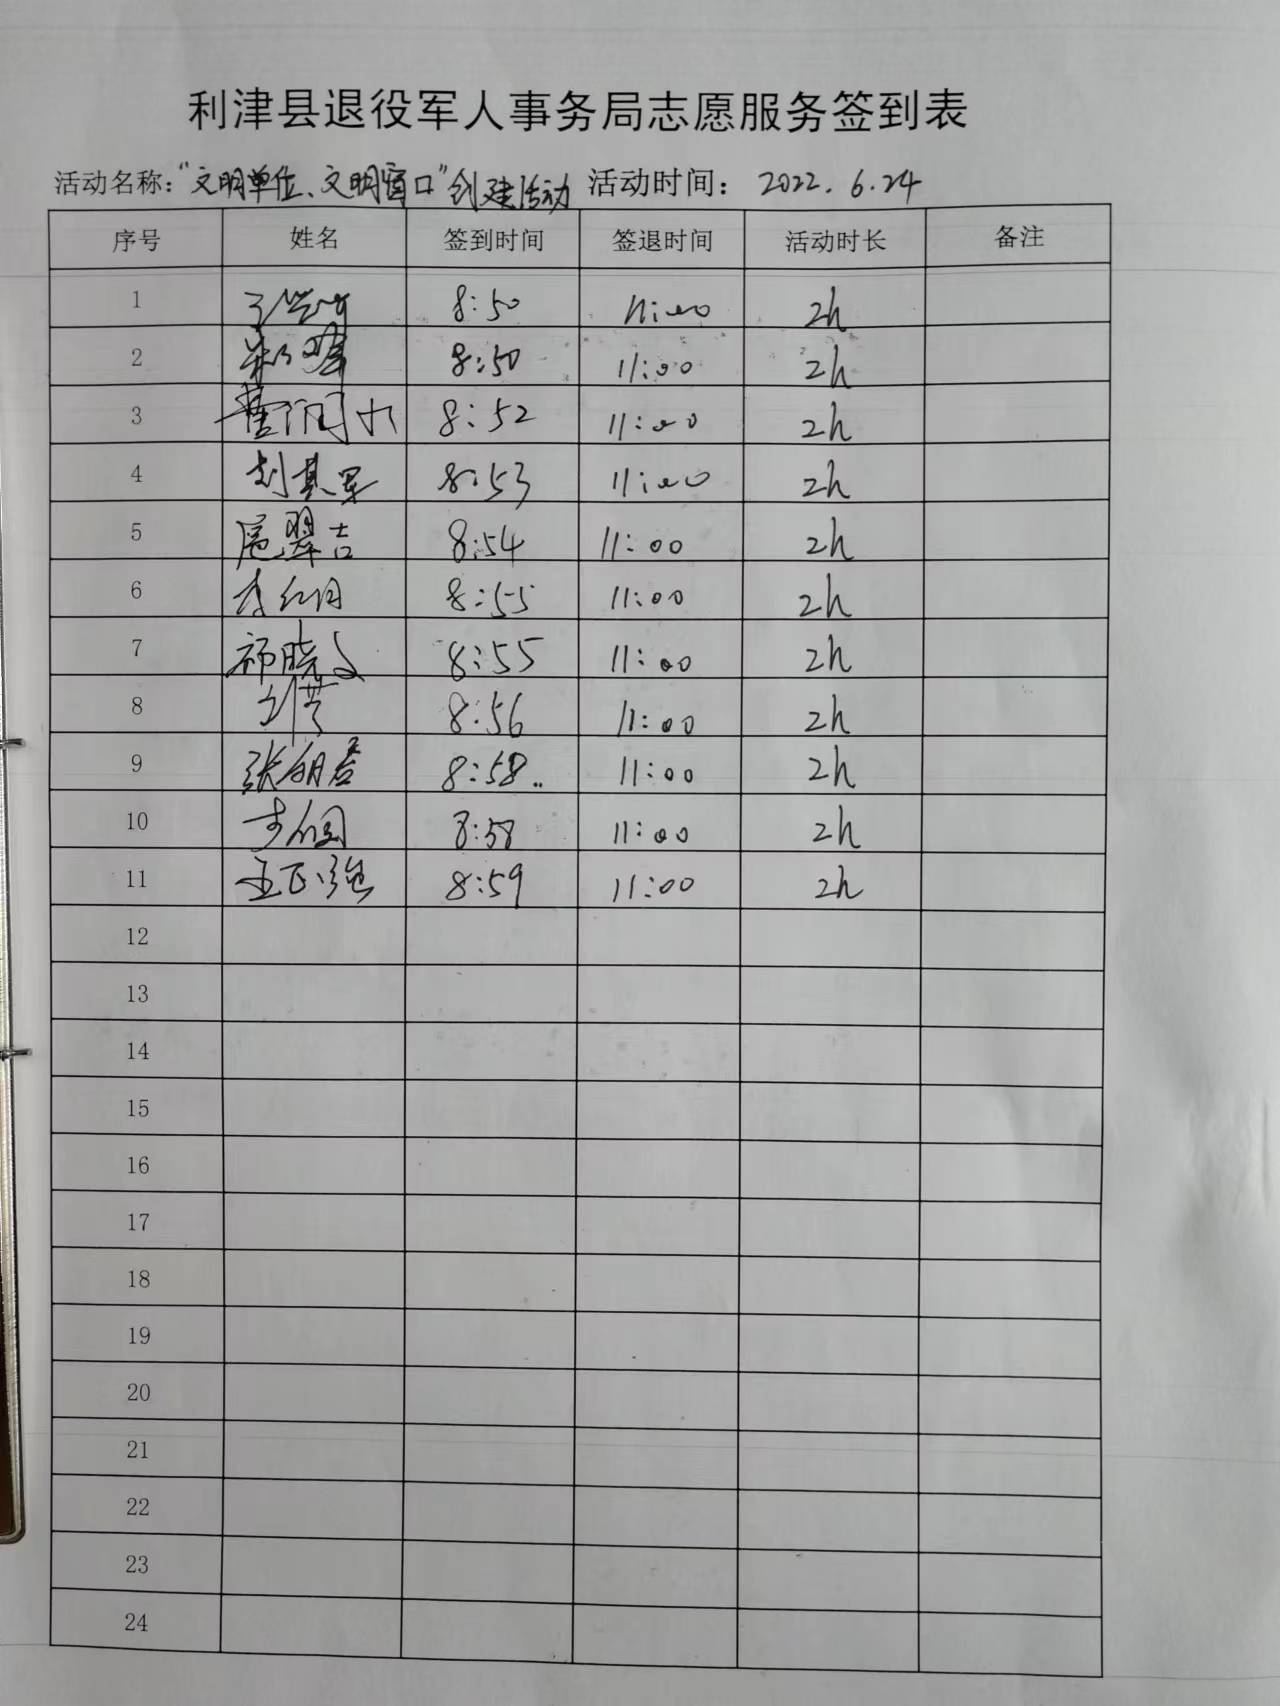 利津县退役军人事务局志愿服务签到表
活动名称:“文明单位、文明窗口”创建活动 活动时间: 2022.6.24
序号 姓名 签到时间 签退时间 活动时长 备注
1 8:50 11:00 2h
2 8:50 11:00 2h
3 8:52 11:00 2h
4 刘其军 8:53 11:00 2h
5 扈翠吉 8:54 11:00 2h
6 8:55 11:00 2h
7 祁晓文 8:55 11:00 2h
8 8:56 11:00 2h
9 8:58 11:00 2h
10 8:58 11:00 2h
11 王正强 8:59 11:00 2h
12
13
14
15
16
17
18
19
20
21
22
23
24